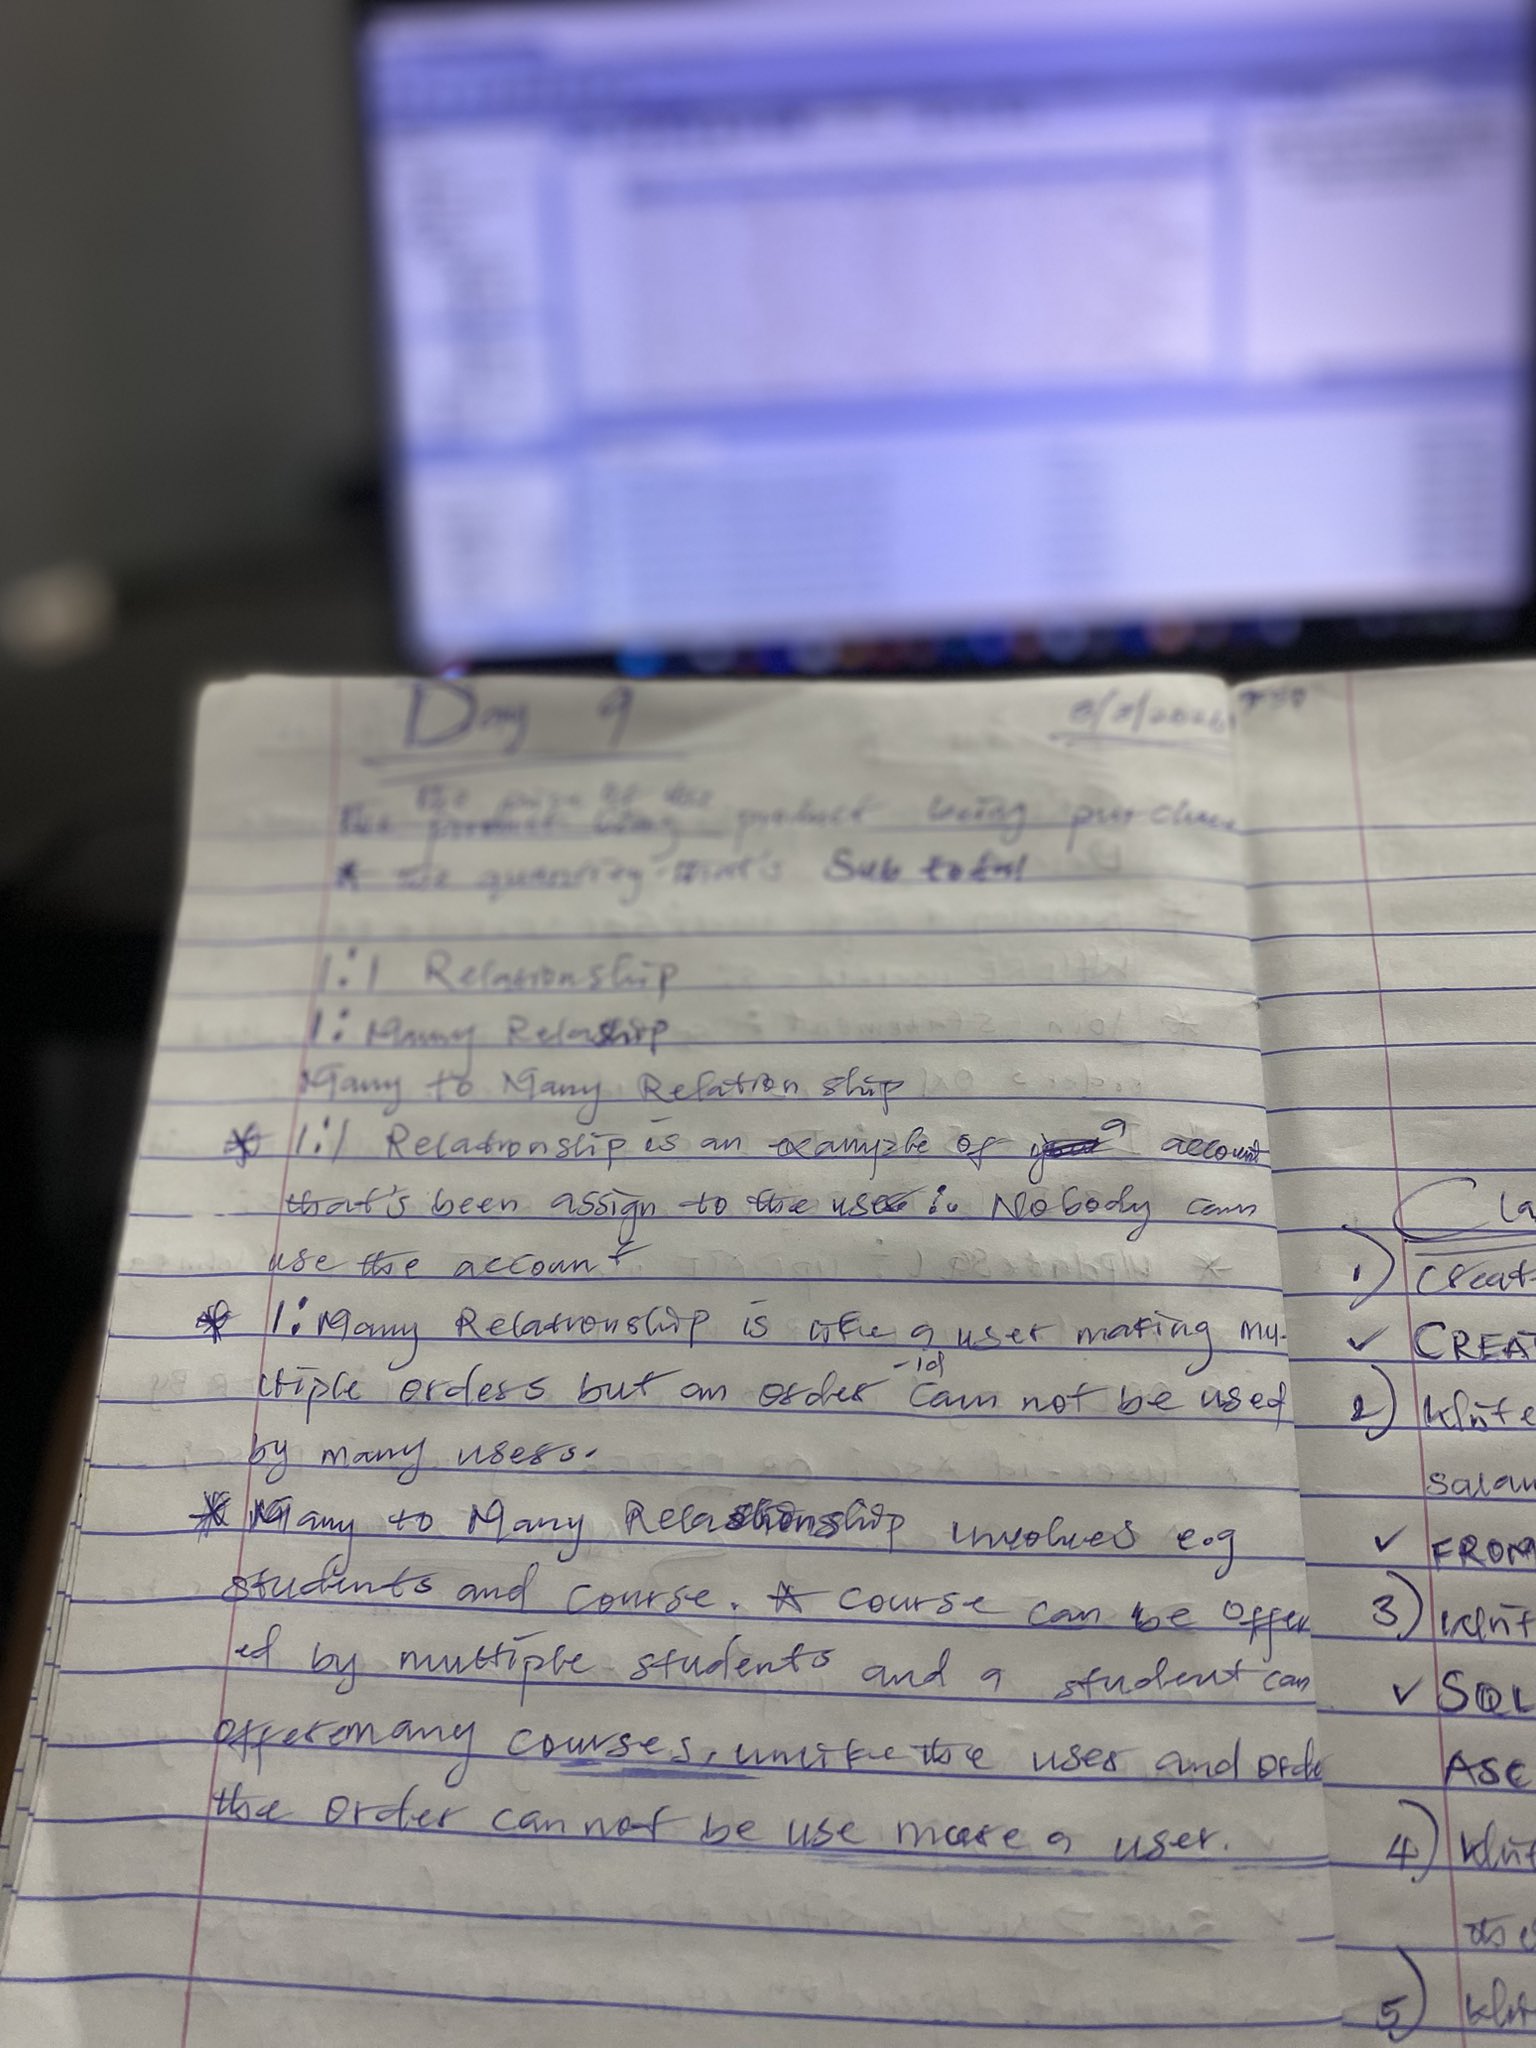 Day 9
product being purchase
* the quantity that's Sub total
1:1 Relationship
1: Many Relaship
Many to Many Relation ship
* 1:1 Relationship is an example of a account
that's been assign to the user. Nobody can
use the account
* 1: Many Relationship is like a user making mu-
ltiple orders but an order -id can not be used
by many users.
* Many to Many Relationship involves e.g
students and course. A course can be offer
ed by multiple students and a student can
offer many courses, unlike the user and orde
the order cannot be use more a user.
Cla
1) Creat
✓ CREAT
2) Write
salar
✓ FROM
3) Writ
✓ SQL
ASC
4) Writ
5) Writ